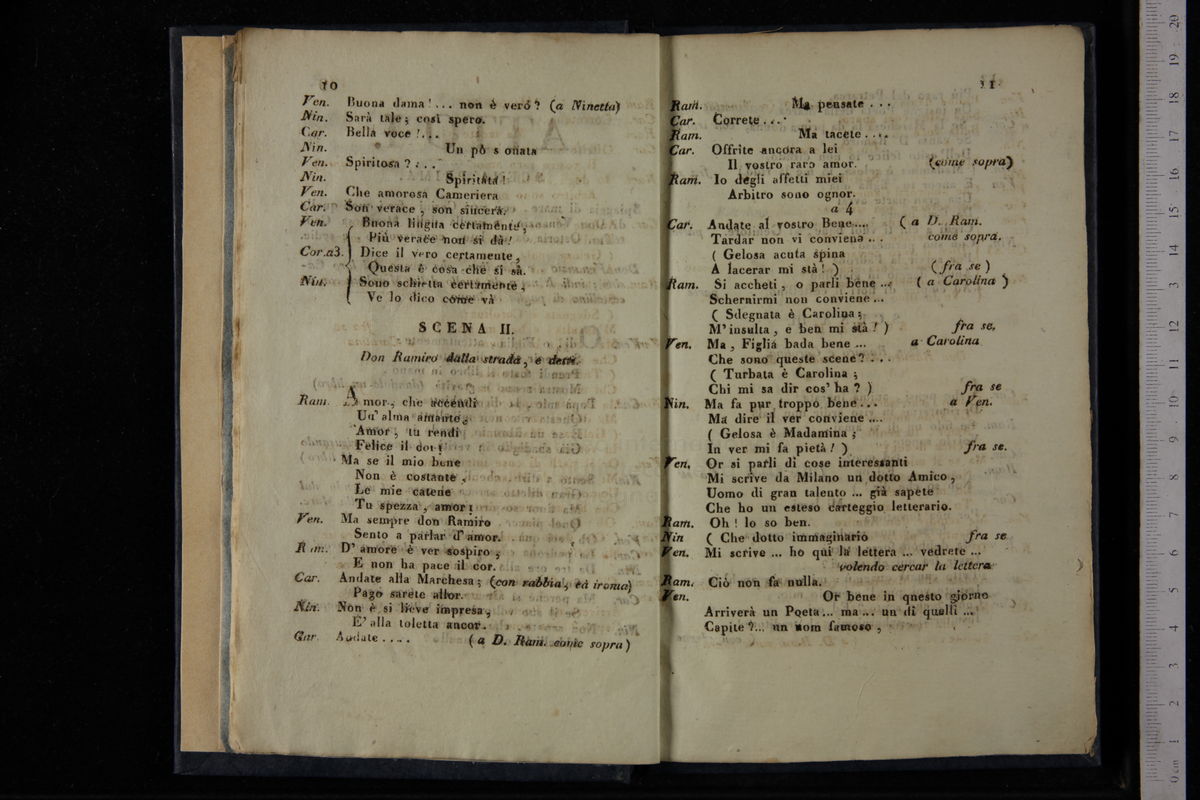 10
Ven. Buona dama!... non è veró? (a Ninetta)
Nin. Sarà tale; così spero.
Car. Bella voce!...
Nin. Un pò s onata
Ven. Spiritosa?...
Nin. Spiritata!
Ven. Che amorosa Cameriera
Car. Son verace, son sincera.
Ven. Buona lingua certamente,
Più verace non si dà!
Cor.a3. Dice il vero certamente,
Questa è cosa che si sà.
Nin. Sono schietta certamente,
Ve lo dico come và
SCENA II.
Don Ramiro dalla strada, e detti.
Ram. Amor, che accendi
Un' alma amante,
Amor, tu rendi
Felice il cor!
Ma se il mio bene
Non è costante,
Le mie catene
Tu spezza, amor!
Ven. Ma sempre don Ramiro
Sento a parlar d'amor.
Ram. D' amore è ver sospiro,
E non ha pace il cor.
Car. Andate alla Marchesa; (con rabbia, ed ironia)
Pago sarete allor.
Nin. Non è sì lieve impresa,
E' alla toletta ancor.
Car. Andate..... (a D. Ram. come sopra)
11
Ram. Ma pensate...
Car. Correte...
Ram. Ma tacete....
Car. Offrite ancora a lei
Il vostro raro amor. (come sopra)
Ram. Io degli affetti miei
Arbitro sono ognor.
a 4
Car. Andate al vostro Bene.... (a D. Ram.
Tardar non vi conviene... come sopra.
( Gelosa acuta spina
A lacerar mi stà! ) (fra se)
Ram. Si accheti, o parli bene... (a Carolina)
Schernirmi non conviene...
( Sdegnata è Carolina;
M' insulta, e ben mi stà!) fra se.
Ven. Ma, Figlia bada bene... a Carolina
Che sono queste scene?...
( Turbata è Carolina;
Chi mi sa dir cos' ha? ) fra se
Nin. Ma fa pur troppo bene... a Ven.
Ma dire il ver conviene....
( Gelosa è Madamina;
In ver mi fa pietà! ) fra se.
Ven. Or si parli di cose interessanti
Mi scrive da Milano un dotto Amico,
Uomo di gran talento ... già sapete
Che ho un esteso carteggio letterario.
Ram. Oh! lo so ben.
Nin ( Che dotto immaginario fra se
Ven. Mi scrive ... ho quì la lettera ... vedrete ...
volendo cercar la lettera
Ram. Ciò non fa nulla.
Ven. Or bene in questo giorno
Arriverà un Poeta... ma... un di quelli ...
Capite?... un uom famoso,